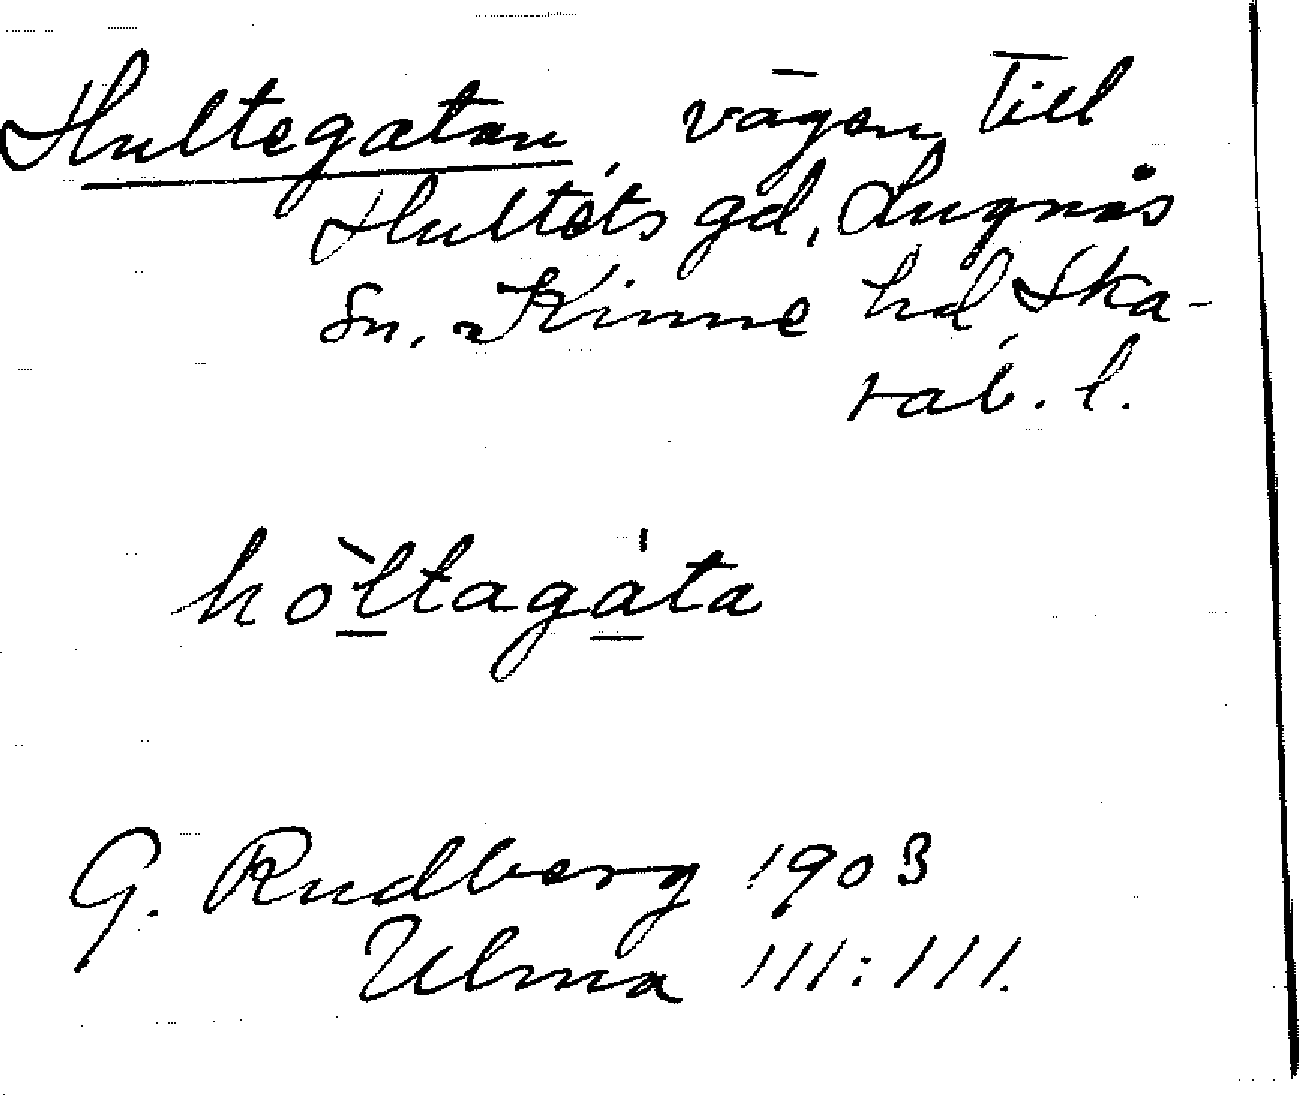 Hultegatan, vägen till
Hultets gd, Lugnås
sn. Kinne hd, Ska-
rab. l.
hòltagáta
G. Rudberg 1903
Ulma 111:111.